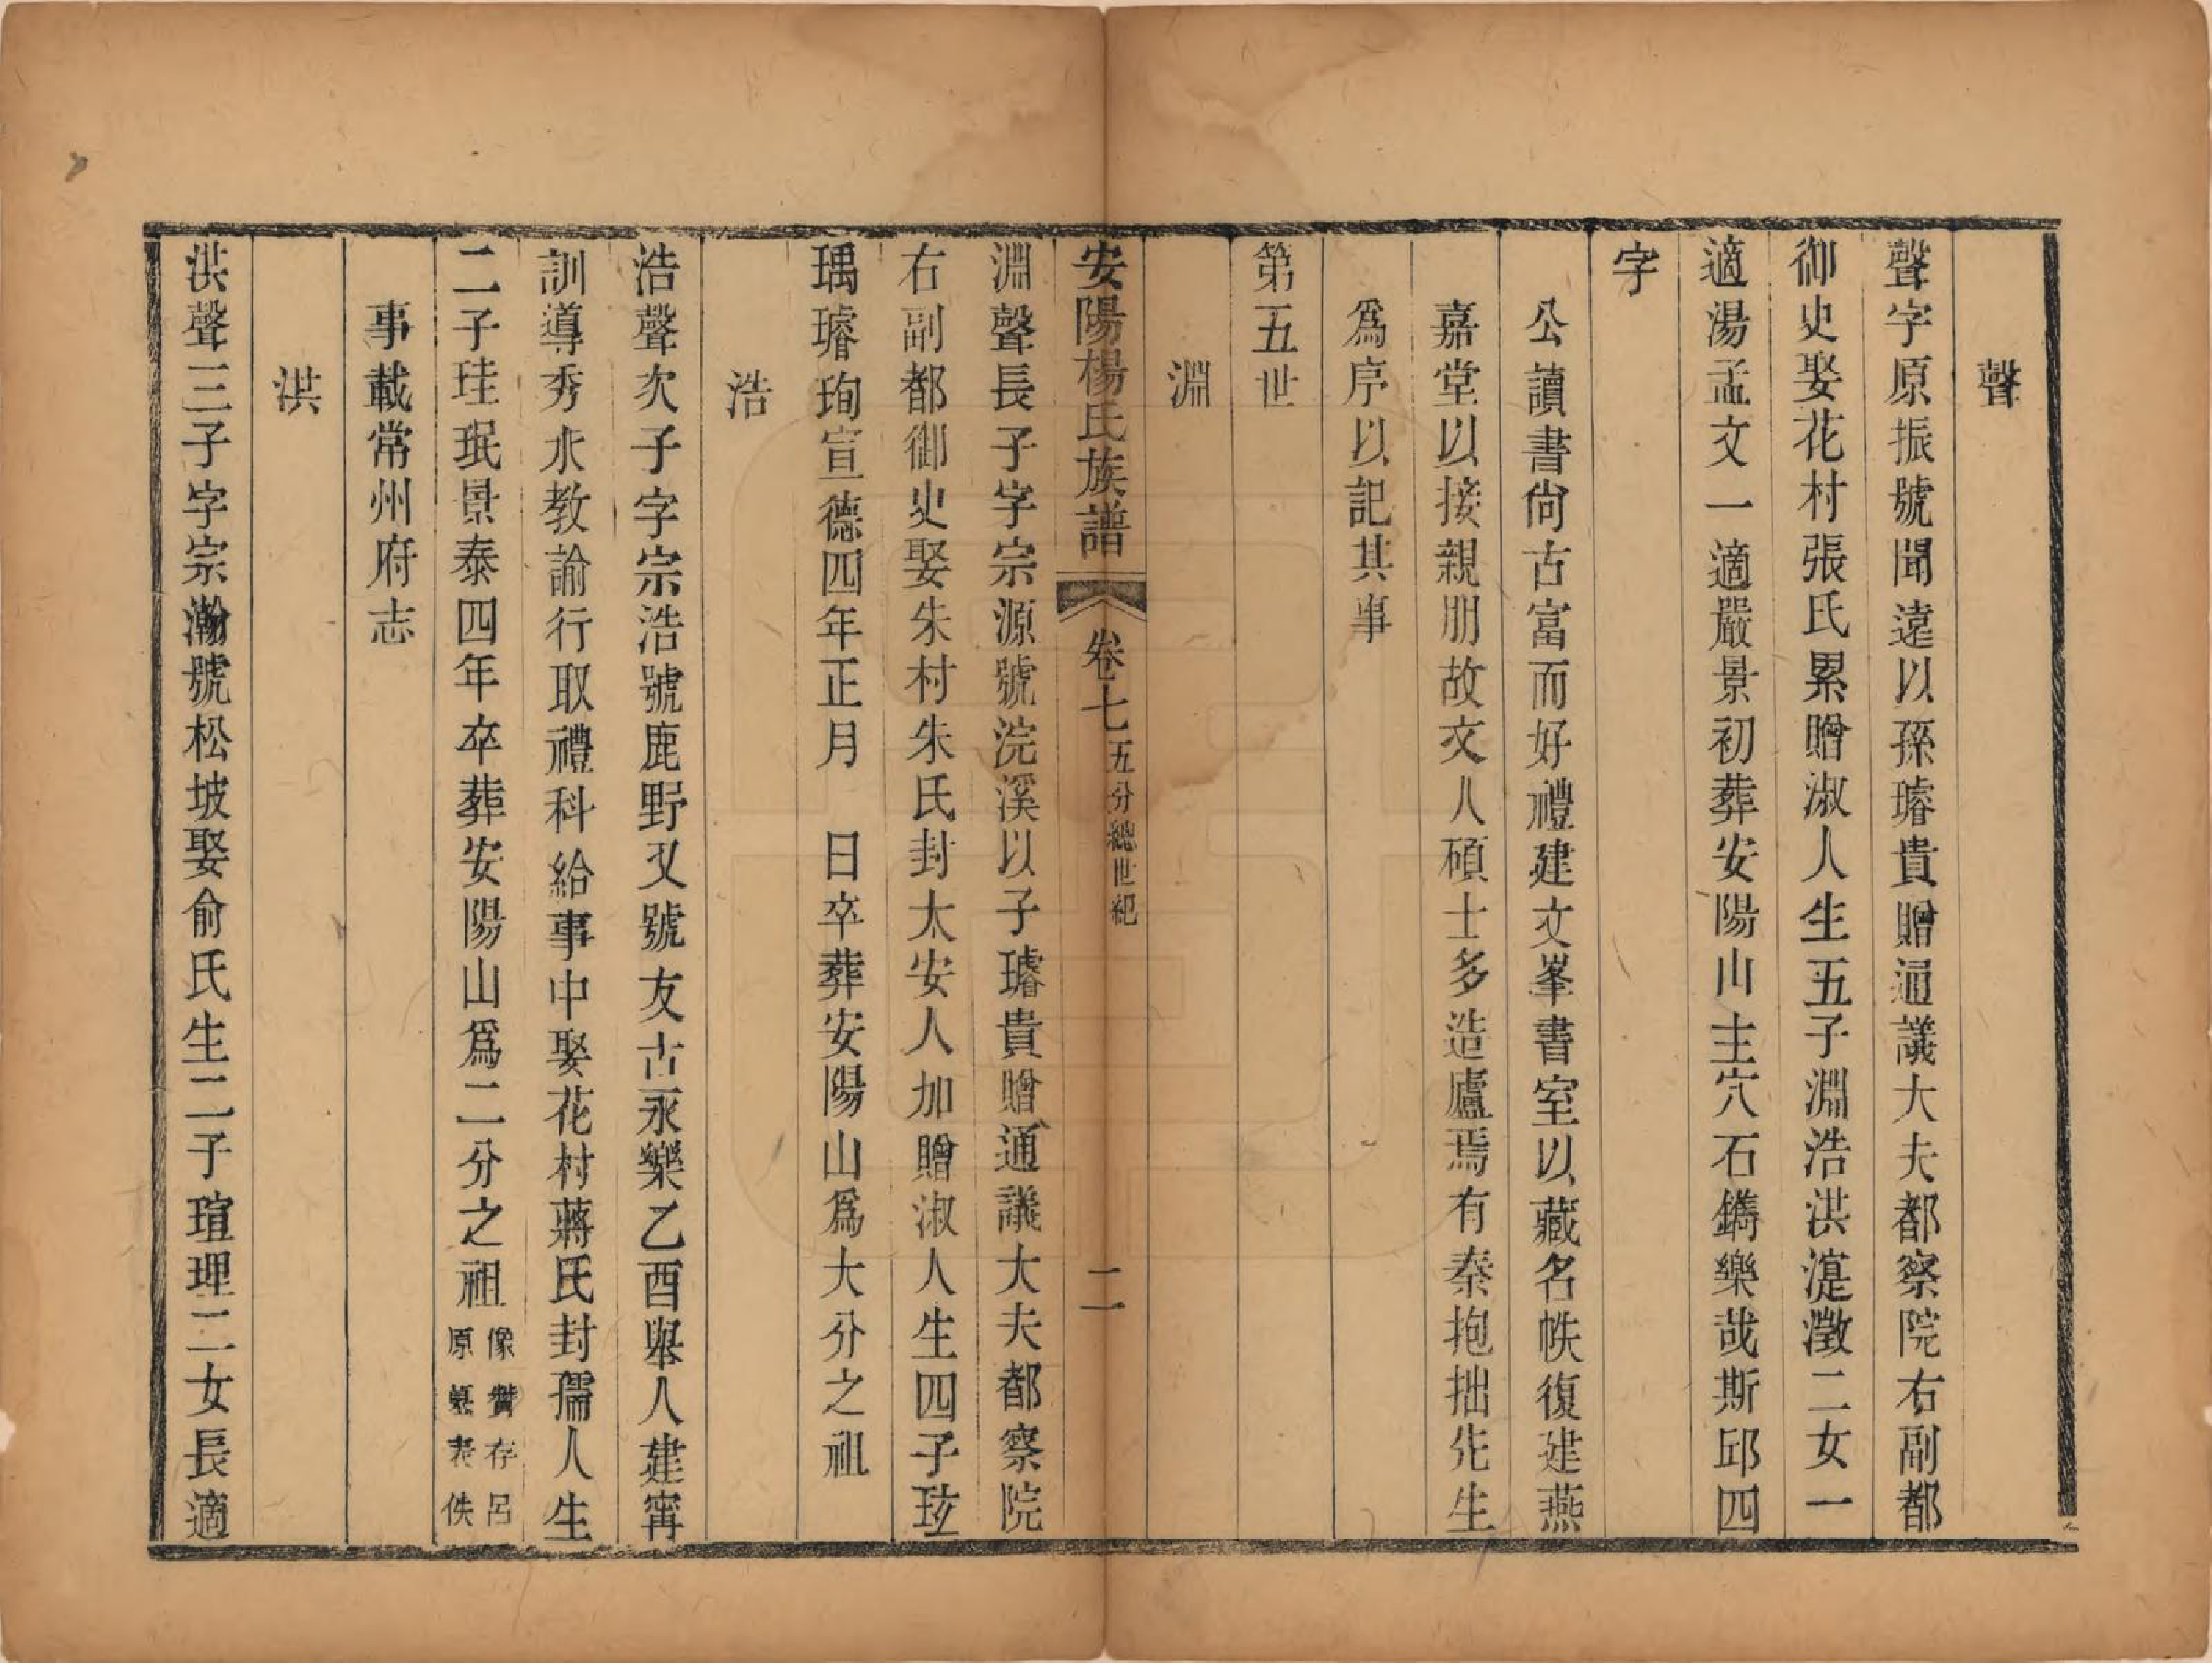 聲
聲字原振號聞遠以孫璿貴贈通議大夫都察院右副都
御史娶花村張氏累贈淑人生五子淵浩洪湜澂二女一
適湯孟文一適嚴景初葬安陽山主穴石鐫樂哉斯邱四
字
公讀書尚古富而好禮建文峯書室以藏名帙復建燕
嘉堂以接親朋故交人碩士多造廬焉有秦抱拙先生
爲序以記其事
第五世
淵
安陽楊氏族譜 卷七 五分總世紀 二
淵聲長子字宗源號浣溪以子璿貴贈通議大夫都察院
右副都御史娶朱村朱氏封太安人加贈淑人生四子玹
瑀璿珣宣德四年正月 日卒葬安陽山爲大分之祖
浩
浩聲次子字宗浩號鹿野又號友古永樂乙酉舉人建寧
訓導秀水教諭行取禮科給事中娶花村蔣氏封孺人生
二子珪珉景泰四年卒葬安陽山爲二分之祖 像贊存呂
原墓表佚
事載常州府志
洪
洪聲三子字宗瀚號松坡娶俞氏生二子瑄理二女長適